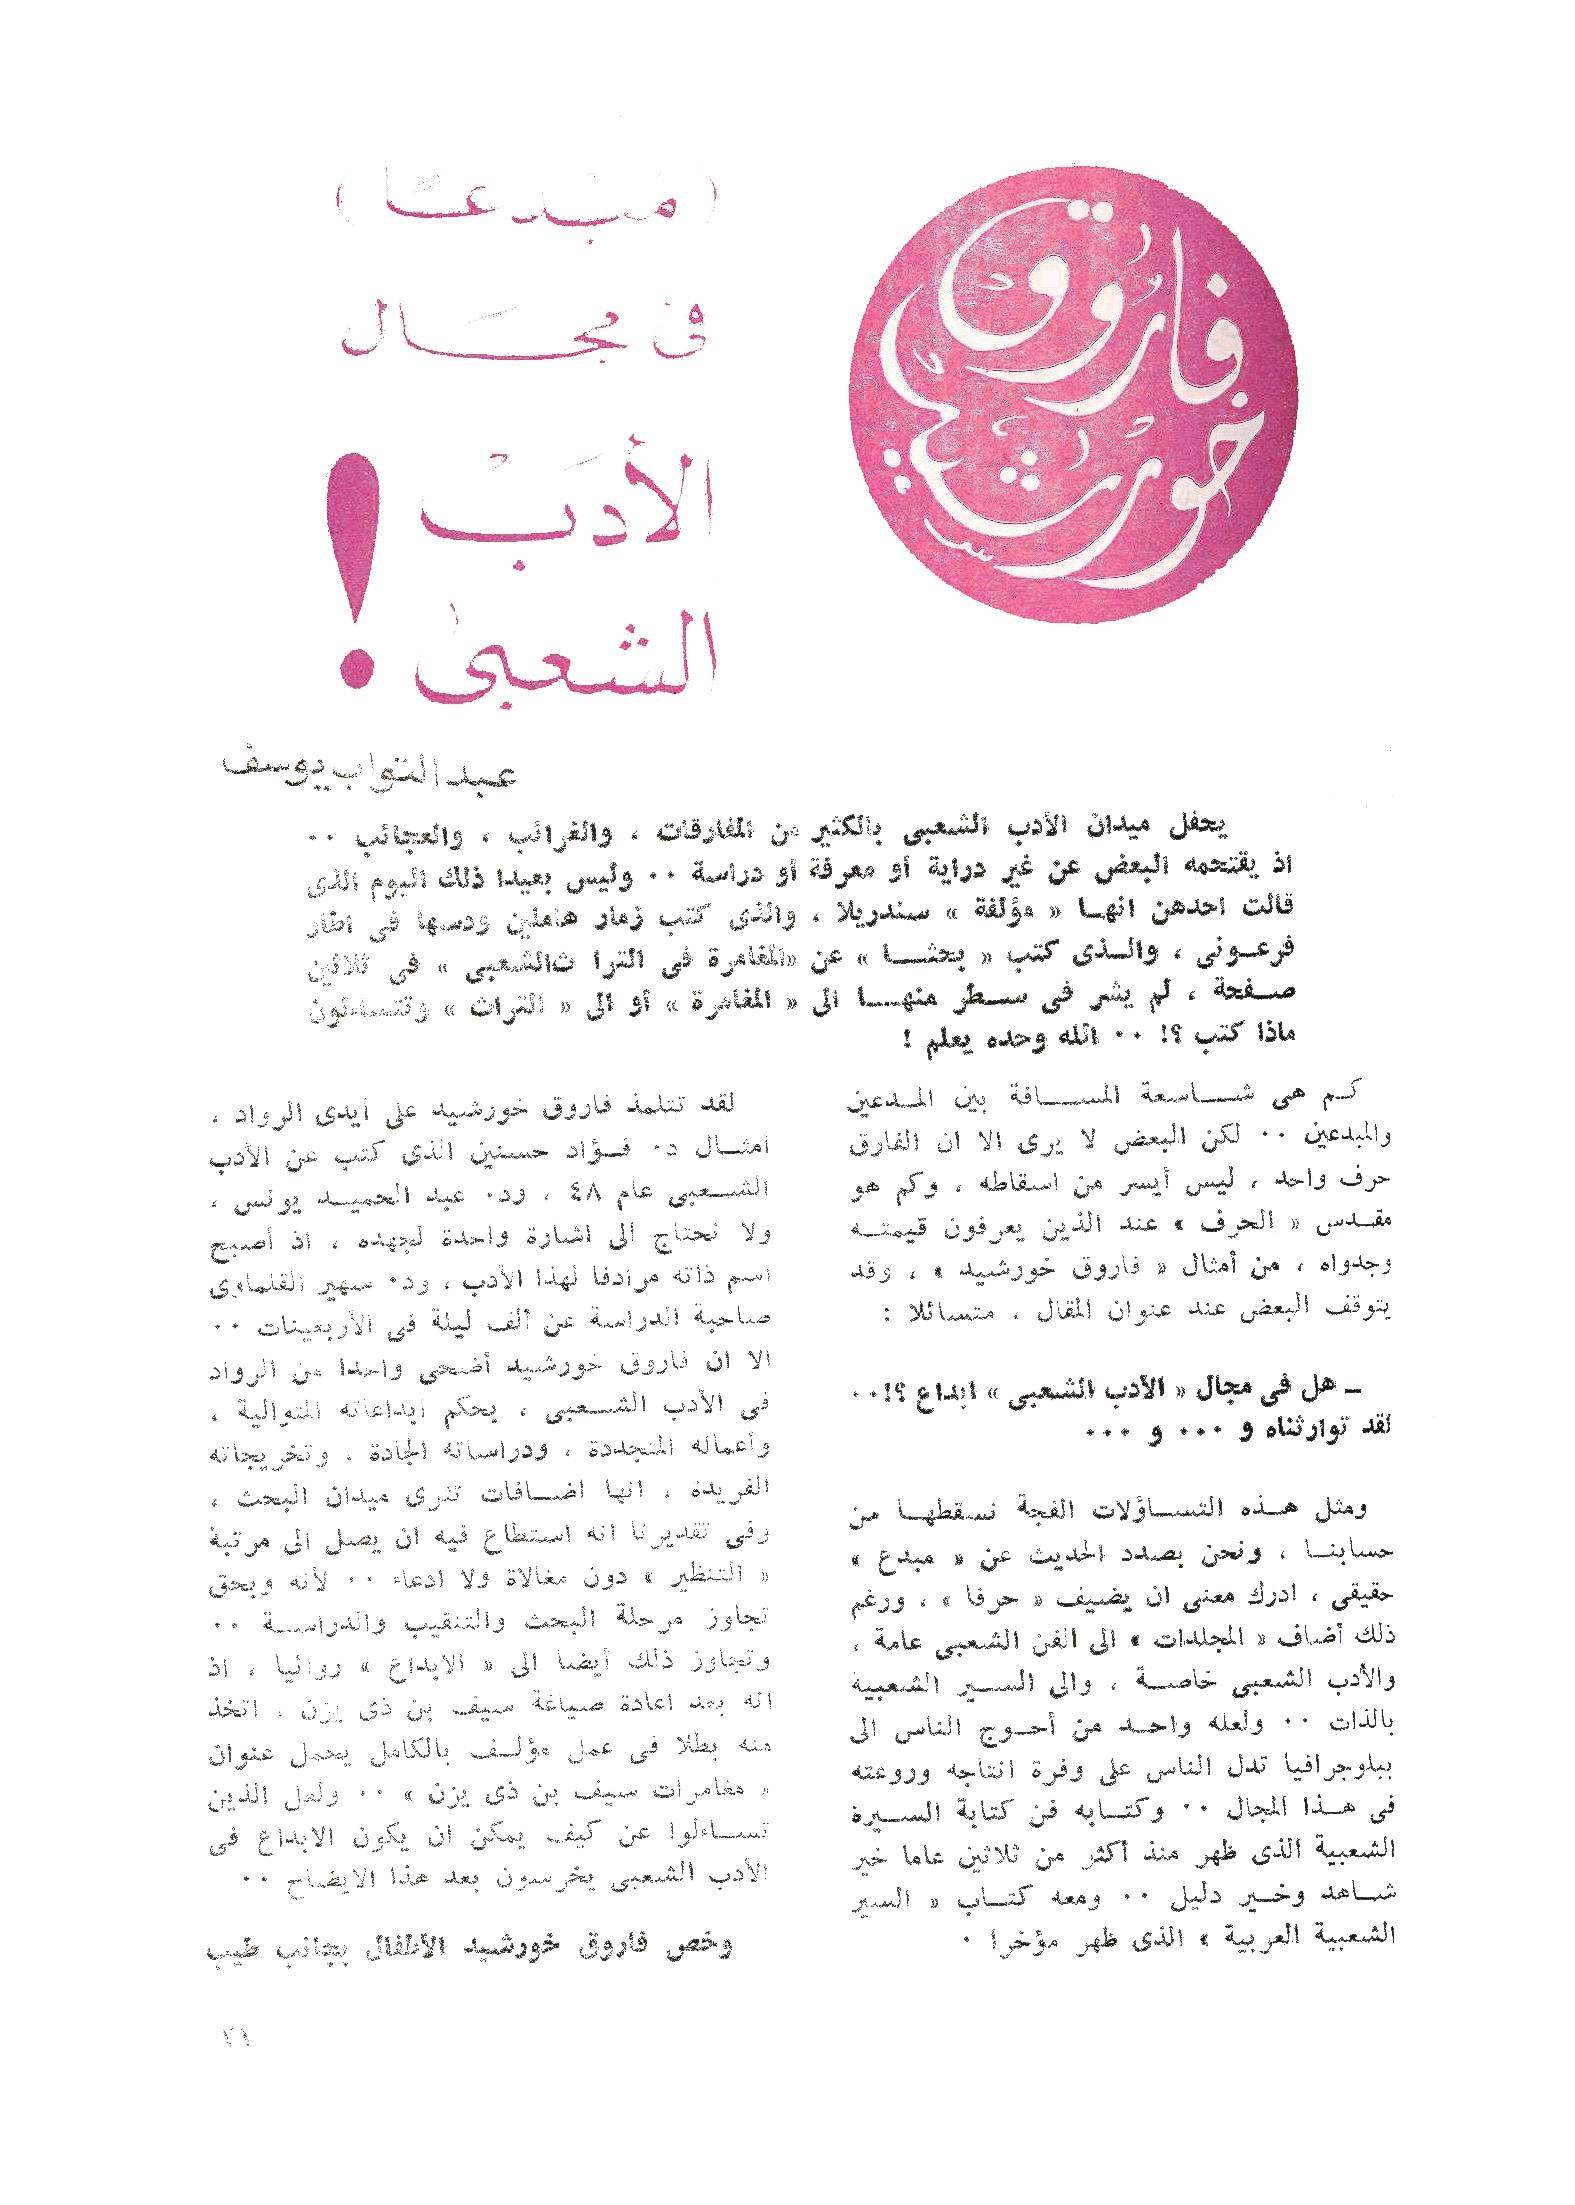 فاروق
خورشيد
(مبدعًا)
فى مجال
الأدب
الشعبى !
عبد التواب يوسف
يحفل ميدان الأدب الشعبى بالكثير من المفارقات ، والغرائب ، والعجائب ٠٠
اذ يقتحمه البعض عن غير دراية أو معرفة أو دراسة ٠٠ وليس بعيدا ذلك اليوم الذى
قالت احدهن انهـا « مؤلفة » سندريلا ، والذى كتب زمار هاملين ودسها فى اطار
فرعـونى ، والـذى كتب « بحثـــا » عن «المغامرة فى الترا ثالشعبى » فى ثلاثين
صـفحة ، لم يشر فى سـطر منهـــا الى « المغامرة » أو الى « التراث » وتتساءلون
ماذا كتب ؟! ٠٠ الله وحده يعلم !
كـم هى شـــاسعة المســـافة بين المـدعين
والمبدعين ٠٠ لكن البعض لا يرى الا ان الفارق
حرف واحد ، ليس أيسر من اسقاطه ، وكم هو
مقـدس « الحرف » عند الذين يعرفون قيمتـه
وجدواه ، من أمثال « فاروق خورشيد » ، وقد
يتوقف البعض عند عنوان المقال ، متسائلا :
ــ هل فى مجال « الأدب الشعبى » ابداع ؟!٠٠
لقد توارثناه و ٠٠٠ و ٠٠٠
ومثل هـذه التسـاؤلات الفجة نسـقطهـا من
حسابنـا ، ونحن بصدد الحديث عن « مبدع »
حقيقى ، ادرك معنى ان يضيف « حرفا » ، ورغم
ذلك أضاف « المجلدات » الى الفن الشعبى عامة ،
والأدب الشعبى خاصـة ، والى السـير الشـعبية
بالذات ٠٠ ولعله واحـد من أحـوج الناس الى
ببلوجرافيا تدل الناس على وفرة انتاجه وروعته
فى هـذا المجال ٠٠ وكتـابه فن كتابة السـيرة
الشعبية الذى ظهر منذ أكثر من ثلاثين عاما خير
شـاهد وخـير دليل ٠٠ ومعه كتـاب « السير
الشعبية العربية » الذى ظهر مؤخرا ٠
لقد تتلمذ فاروق خورشيد على أيدى الرواد ،
امثـال د٠ فـؤاد حسنين الذى كتب عن الأدب
الشـعبى عام ٤٨ ، ود٠ عبد الحميـد يونس ،
ولا نحتاج الى اشارة واحدة لجهده ، اذ أصبح
اسم ذاته مرادفا لهذا الأدب ، ود٠ سهير القلماوى
صاحبة الدراسة عن ألف ليلة فى الأربعينات ٠٠
الا ان فاروق خورشـيد أضحى واحدا من الرواد
فى الأدب الشـعبى ، بحكم ابداعاته المتوالية ،
وأعماله المتجددة ، ودراساته الجادة ، وتخريجاته
الفريدة ، انها اضـافات تثرى ميدان البحث ،
وفى تقديرنا انه استطاع فيه ان يصل الى مرتبة
« التنظير » دون مغالاة ولا ادعاء ٠٠ لأنه وبحق
تجاوز مرحلة البحث والتنقيب والدراسـة ٠٠
وتجاوز ذلك أيضا الى « الابداع » روائيا ، اذ
انه بعد اعادة صياغة سيف بن ذى يزن ، اتخذ
منه بطلا فى عمل مؤلـف بالكامل يحمل عنوان
« مغامرات سيف بن ذى يزن » ٠٠ ولعل الذين
تسـاءلوا عن كيف يمكن ان يكون الابداع فى
الأدب الشعبى يخرسون بعد هذا الايضاح ٠٠
وخص فاروق خورشيد الأطفال بجانب طيب
٢١